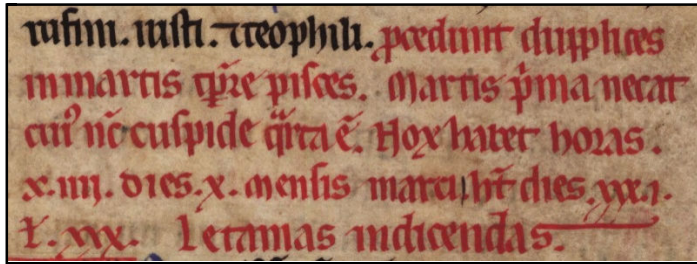 rufini. iusti. ⁊ teophili. p̱cedunt dupplices
in martis tp̄re pisces. Martis p̄ma necat
cui᷒ nc̄ cuspide q̄rta ē. Nox habet horas.
x.iiii. dies. x. Mensis marcii ht̄ dies. xxx.i.
ł. xxx. Letanias indicendas.